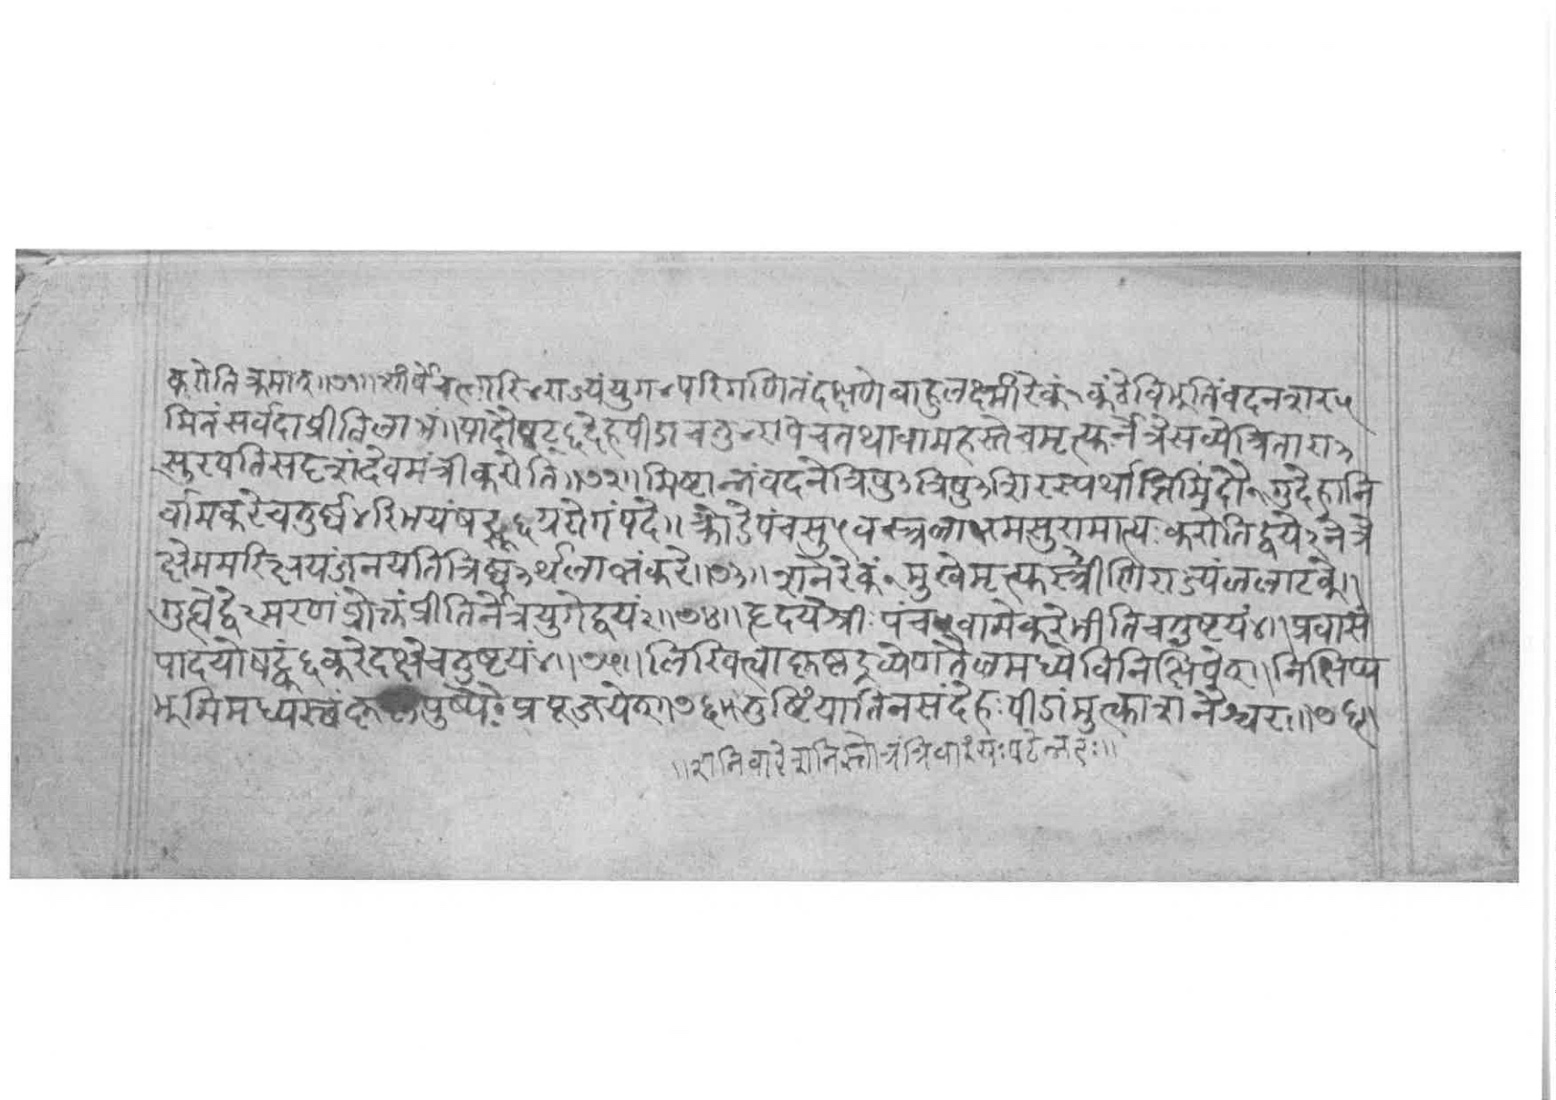 करोतिक्रमात्॥७१॥शीर्षेचत्वारि४राज्यंयुग४परिगणितंदक्षणेबाहुलक्ष्मीरेकं१कंठेविभुतिंवदनशर५
मितंसर्वदाप्रीतिलाभं॥पादौषट्६देहपीडाचतु४रापेचतथावामहस्तेचमृत्युर्नेत्रेसव्येत्रितारा३
सुरपतिसदृशंदेवमंत्रीकरोति॥७२॥मिष्टान्नंवदनेत्रिषु३त्रिषु३शिरस्यर्थाप्तिमिंदौ१गुदेहानि
र्वामकरेचतुर्ष्व४रिभयंषट्सू६द्यरोगंपदे॥क्रोडेपंचसु५वस्त्रलाभमसुरामात्यःकरोतिद्वये२नेत्रे
क्षेममरिक्षयंजनयतित्रिष्व३र्थलाभंकरे॥७३॥शनेरेकं१मुखेमृत्युस्त्रीणिराज्यंललाटके॥
गुह्येद्वे२मरणंप्रोक्तंप्रीतिर्नेत्रयुगेद्वयं२॥७४॥हृदयेश्रीःपंच५वामेकरेभीतिचतुष्टयं४॥प्रवासं
पादयोषट्कं६करेदक्षेचतुष्टयं४॥७५॥लिखित्वाकृष्णद्रव्येणतैलमध्येविनिक्षिपेत्॥निक्षिप्य
भुमिमध्यस्थंकृष्णपुष्पैःप्रपूजयेत्॥७६॥तुष्टिंयातिनसंदेहःपीडांमुक्त्वाशनैश्चरः॥७६॥
॥शनिवारेशनिस्तोत्रंत्रिवारंयःपठेन्नरः॥